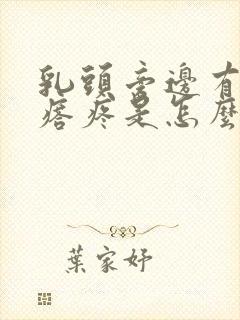 乳頭旁邊有
痞疼是怎麼
葉家妤